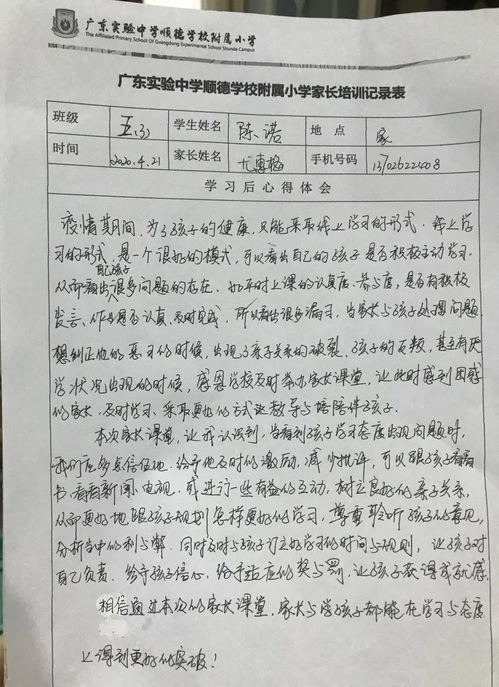 广东实验中学顺德学校附属小学
The Affiliated Primary School Of Guangdong Experimental School Shunde Campus
广东实验中学顺德学校附属小学家长培训记录表
班级 五(3) 学生姓名 陈诺 地点 家
时间 2020.4.21 家长姓名 手机号码 13702622408
学习后心得体会
疫情其间,为了孩子的健康,只能采取线上学习的形式。线上学
习的形式,是一个很好的模式,可以看出自己的孩子是否积极主动学习,
配孩子
从而看出很多问题的存在。如平时上课的认真度、参与度,是否有积极
发言、作业是否认真、及时完成。所以看出很多漏习,当家长与孩子处理问题
想纠正他的恶习的时候,出现了亲子关系的破裂、孩子的反叛,甚至有厌
学状况出现的时候,感恩学校及时举办家长课堂,让此时感到困惑
的家长,及时学习、采取更好的方式去教导与陪伴孩子。
本次家长课堂,让我认识到,当看到孩子学习态度出现问题时,
我们应多点信任他、给予他及时的激励,减少批评,可以跟孩子看看
书、看看新闻、电视,或进行一些有益的互动,树立良好的亲子关系,
从而更好地跟孩子规划怎样更好的学习,尊尊聆听孩子的意见,
分析当中的利与弊。同时及时与孩子订立好学习的时间与规则,让孩子对
自己负责。给予孩子信心、给予适应的奖与罚,让孩子获得成就感。
相信通过本次的家长课堂,家长与学孩子都能在学习与态度
上得到更好的突破!